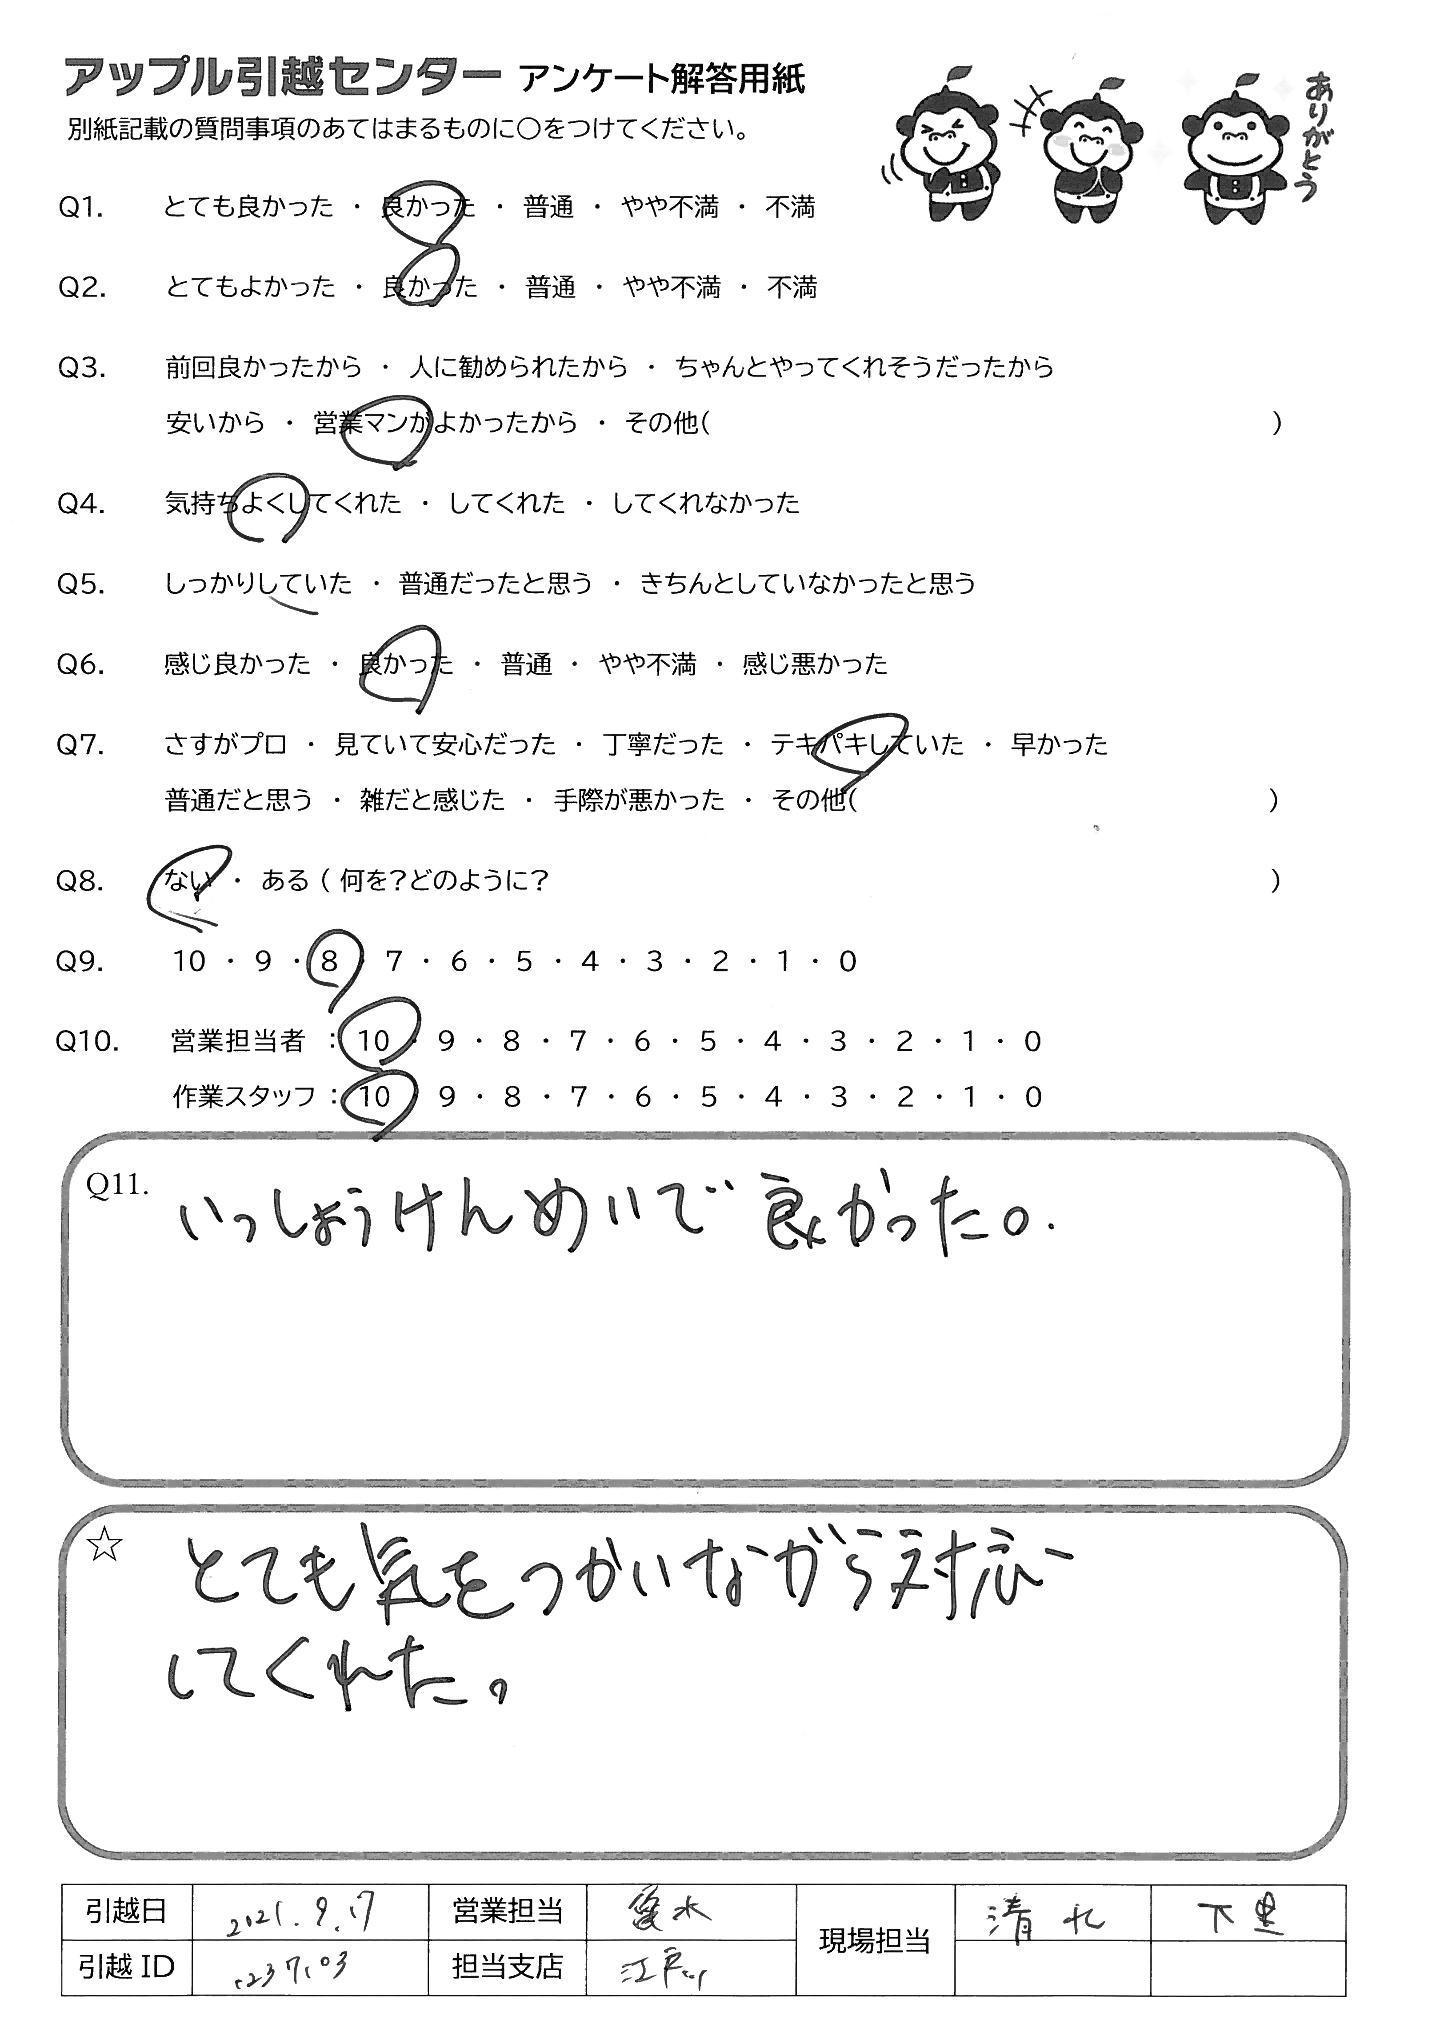 アップル引越センター アンケート解答用紙
別紙記載の質問事項のあてはまるものに○をつけてください。
ありがとう
Q1. とても良かった ・ 良かった ・ 普通 ・ やや不満 ・ 不満
Q2. とてもよかった ・ 良かった ・ 普通 ・ やや不満 ・ 不満
Q3. 前回良かったから ・ 人に勧められたから ・ ちゃんとやってくれそうだったから
安いから ・ 営業マンがよかったから ・ その他( )
Q4. 気持ちよくしてくれた ・ してくれた ・ してくれなかった
Q5. しっかりしていた ・ 普通だったと思う ・ きちんとしていなかったと思う
Q6. 感じ良かった ・ 良かった ・ 普通 ・ やや不満 ・ 感じ悪かった
Q7. さすがプロ ・ 見ていて安心だった ・ 丁寧だった ・ テキパキしていた ・ 早かった
普通だと思う ・ 雑だと感じた ・ 手際が悪かった ・ その他( )
Q8. ない ・ ある ( 何を?どのように? )
Q9. 10 ・ 9 ・ 8 ・ 7 ・ 6 ・ 5 ・ 4 ・ 3 ・ 2 ・ 1 ・ 0
Q10. 営業担当者 : 10 ・ 9 ・ 8 ・ 7 ・ 6 ・ 5 ・ 4 ・ 3 ・ 2 ・ 1 ・ 0
作業スタッフ : 10 ・ 9 ・ 8 ・ 7 ・ 6 ・ 5 ・ 4 ・ 3 ・ 2 ・ 1 ・ 0
Q11. いっしょうけんめいで良かった。
☆ とても気をつかいながら対応
してくれた。
引越日 2021.9.17 営業担当 現場担当 清水 下里
引越ID 担当支店 江戸川